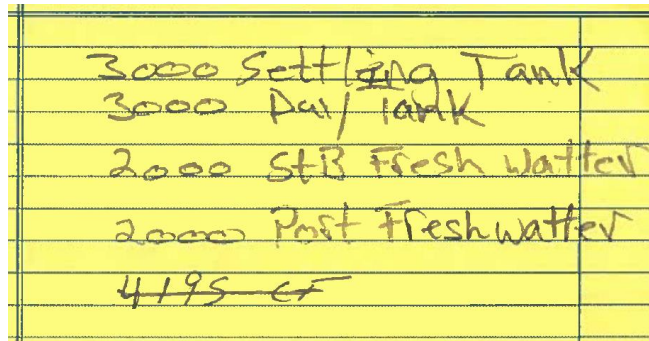 3000 Settling Tank
3000 Day Tank
2000 StB Fresh watter
2000 Port Fresh watter
4195 CF